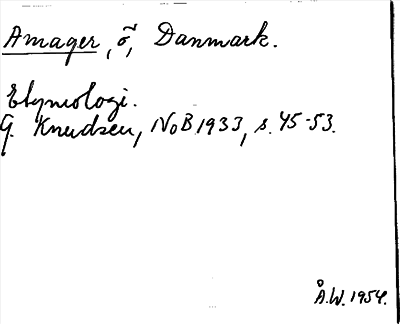 Amager, ö, Danmark.
Etymologi.
G. Knudsen, NoB 1933, s. 45-53.
Å.W. 1954.